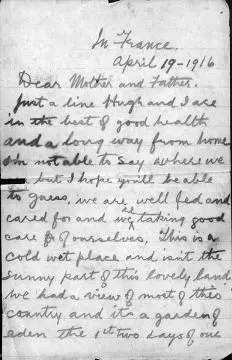 In France.
April 19-1916
Dear Mother and Father.
Just a line Hugh and I are
in the best of good health
and a long way from home
I'm not able to say where we
but I hope you'll be able
to guess, we are well fed and
cared for and we'll taking good
care of ourselves, This is a
cold wet place and isn't the
sunny part of this lovely land
we had a view of most of this
country and it's a garden of
eden the 1st two days of our